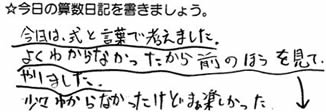 ☆今日の算数日記を書きましょう。
今日は、式と言葉で考えました。
よくわからなかったから前のほうを見て、
やりました。
少しわからなかったけどま楽しかった。